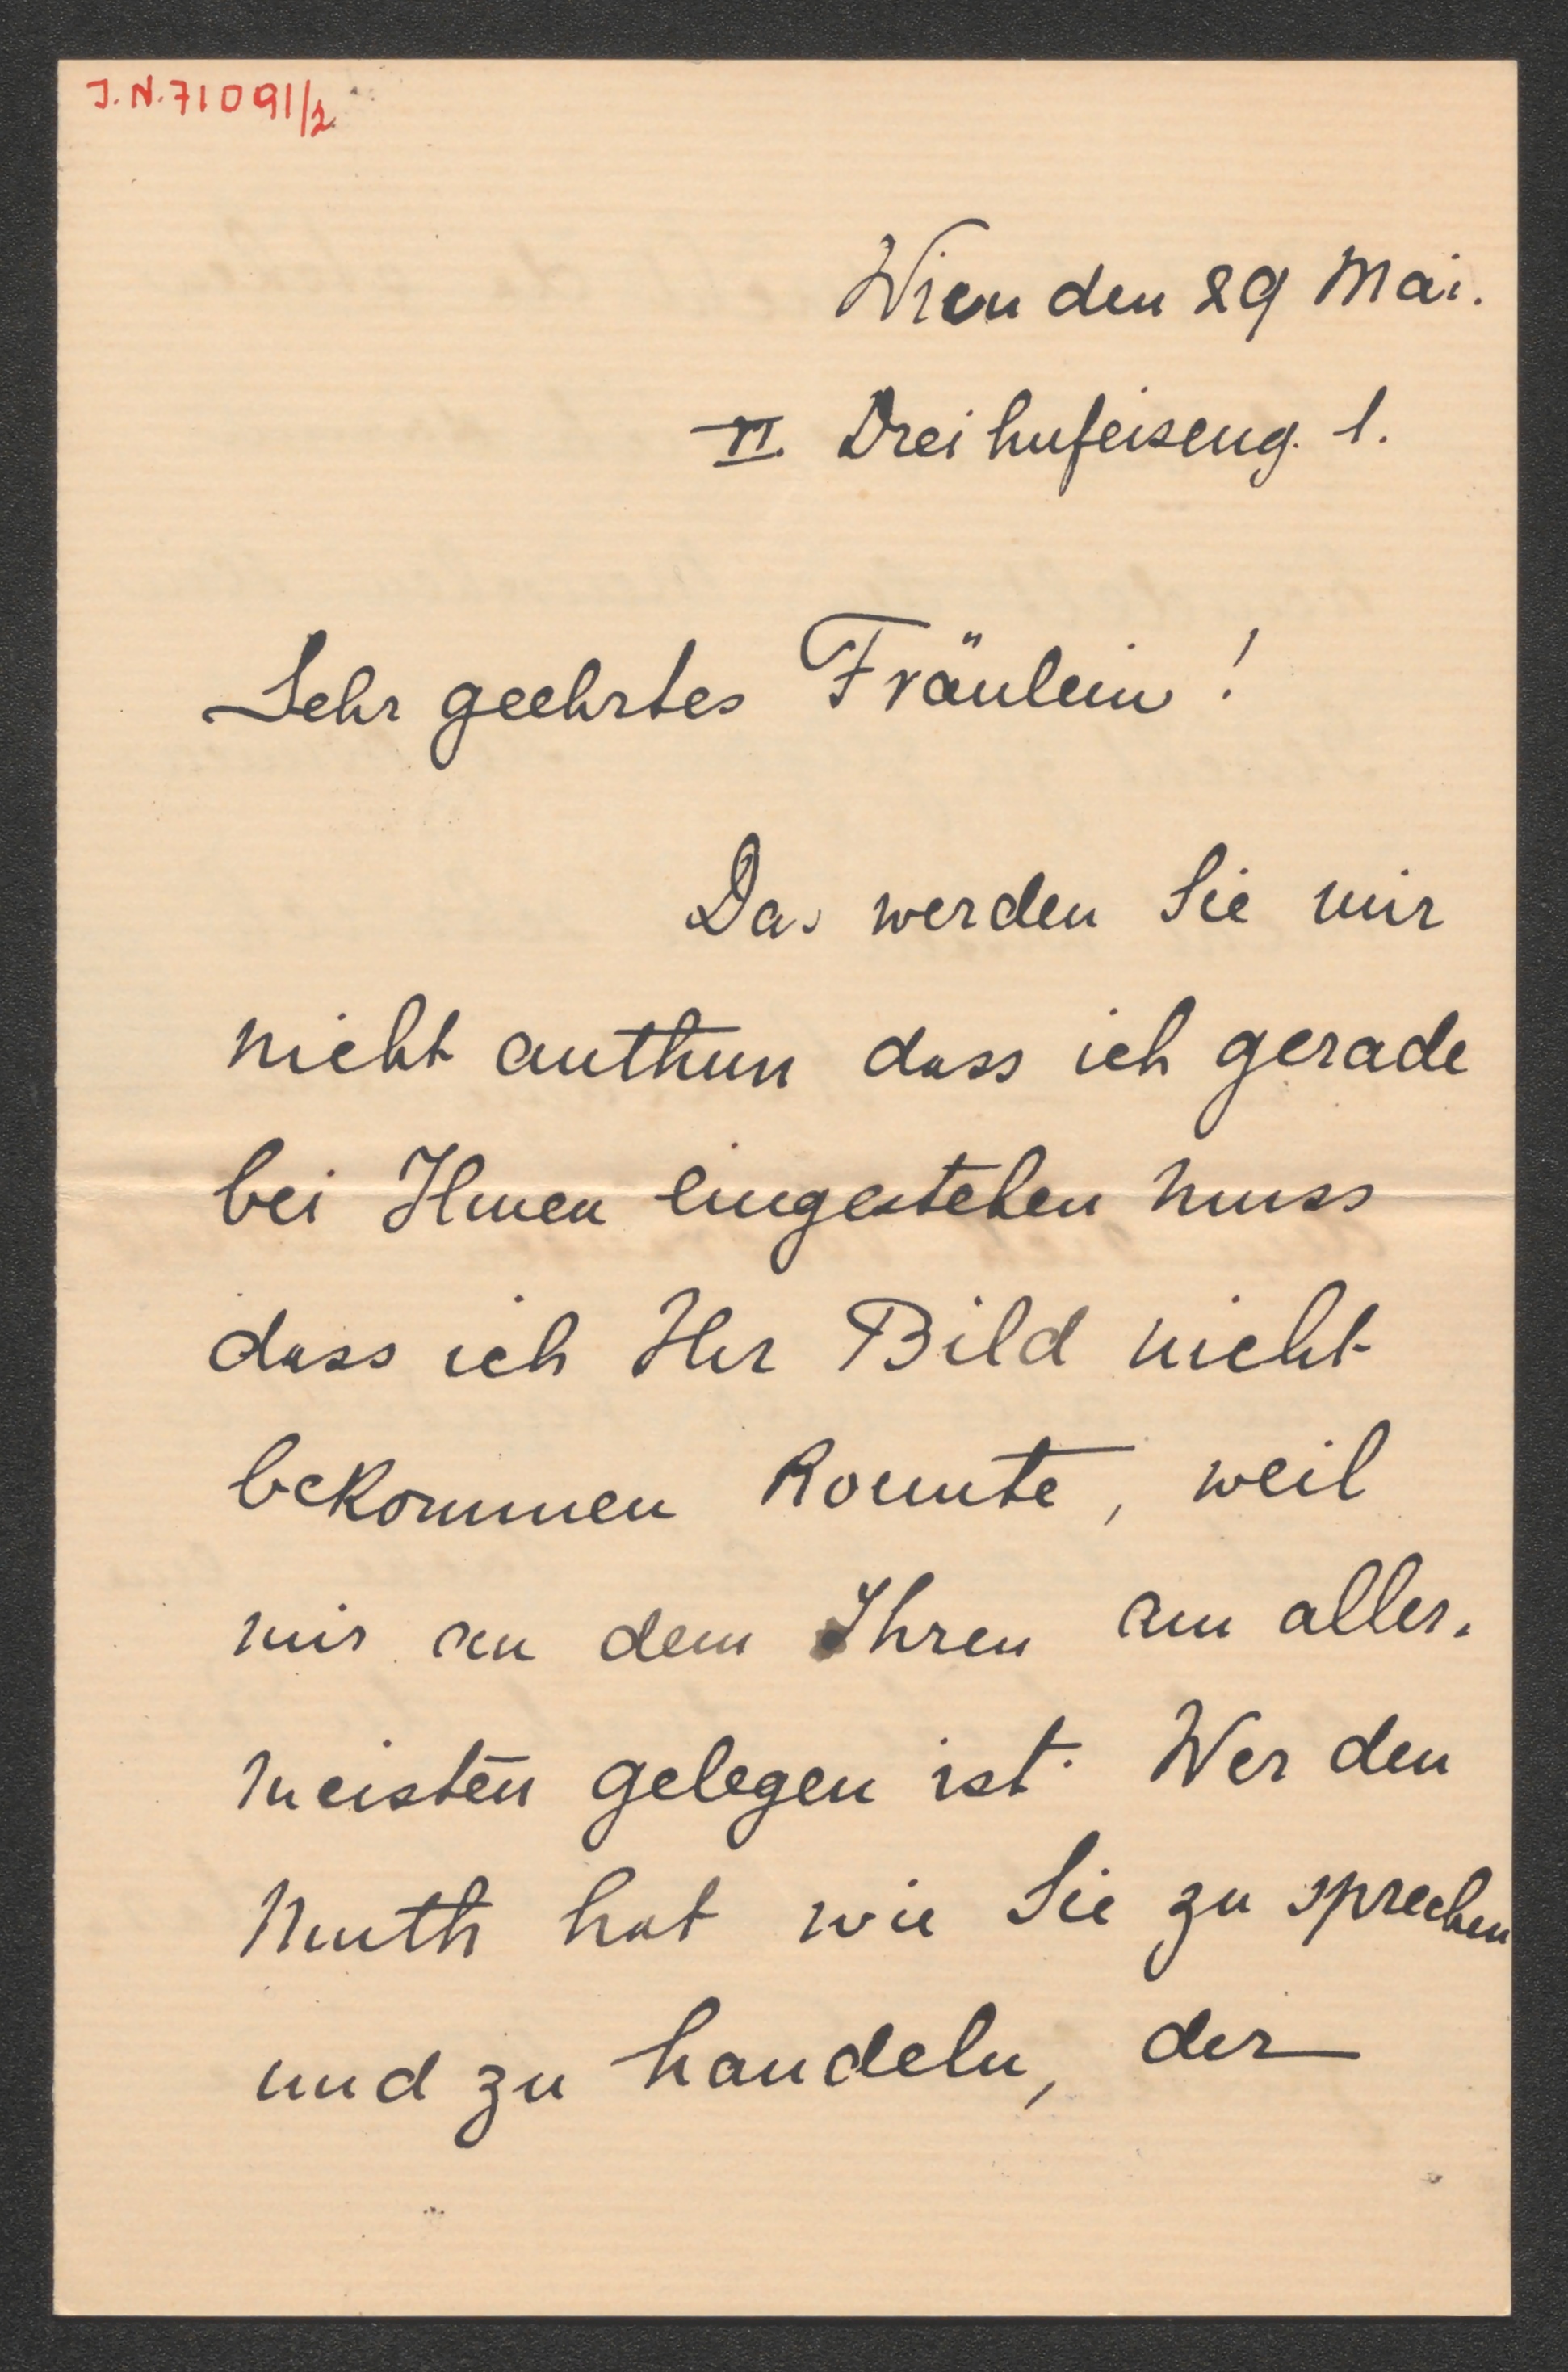 J.N. 71091/2
Wien den 29 Mai.
VI. Dreihufeiseng. 1.
Sehr geehrtes Fräulein!
Das werden Sie mir
nicht anthun dass ich gerade
bei Ihnen eingestehen muss
dass ich Ihr Bild nicht
bekommen konnte, weil
mir an dem Ihren am aller-
meisten gelegen ist. Wer den
Muth hat wie Sie zu sprechen
und zu handeln, der